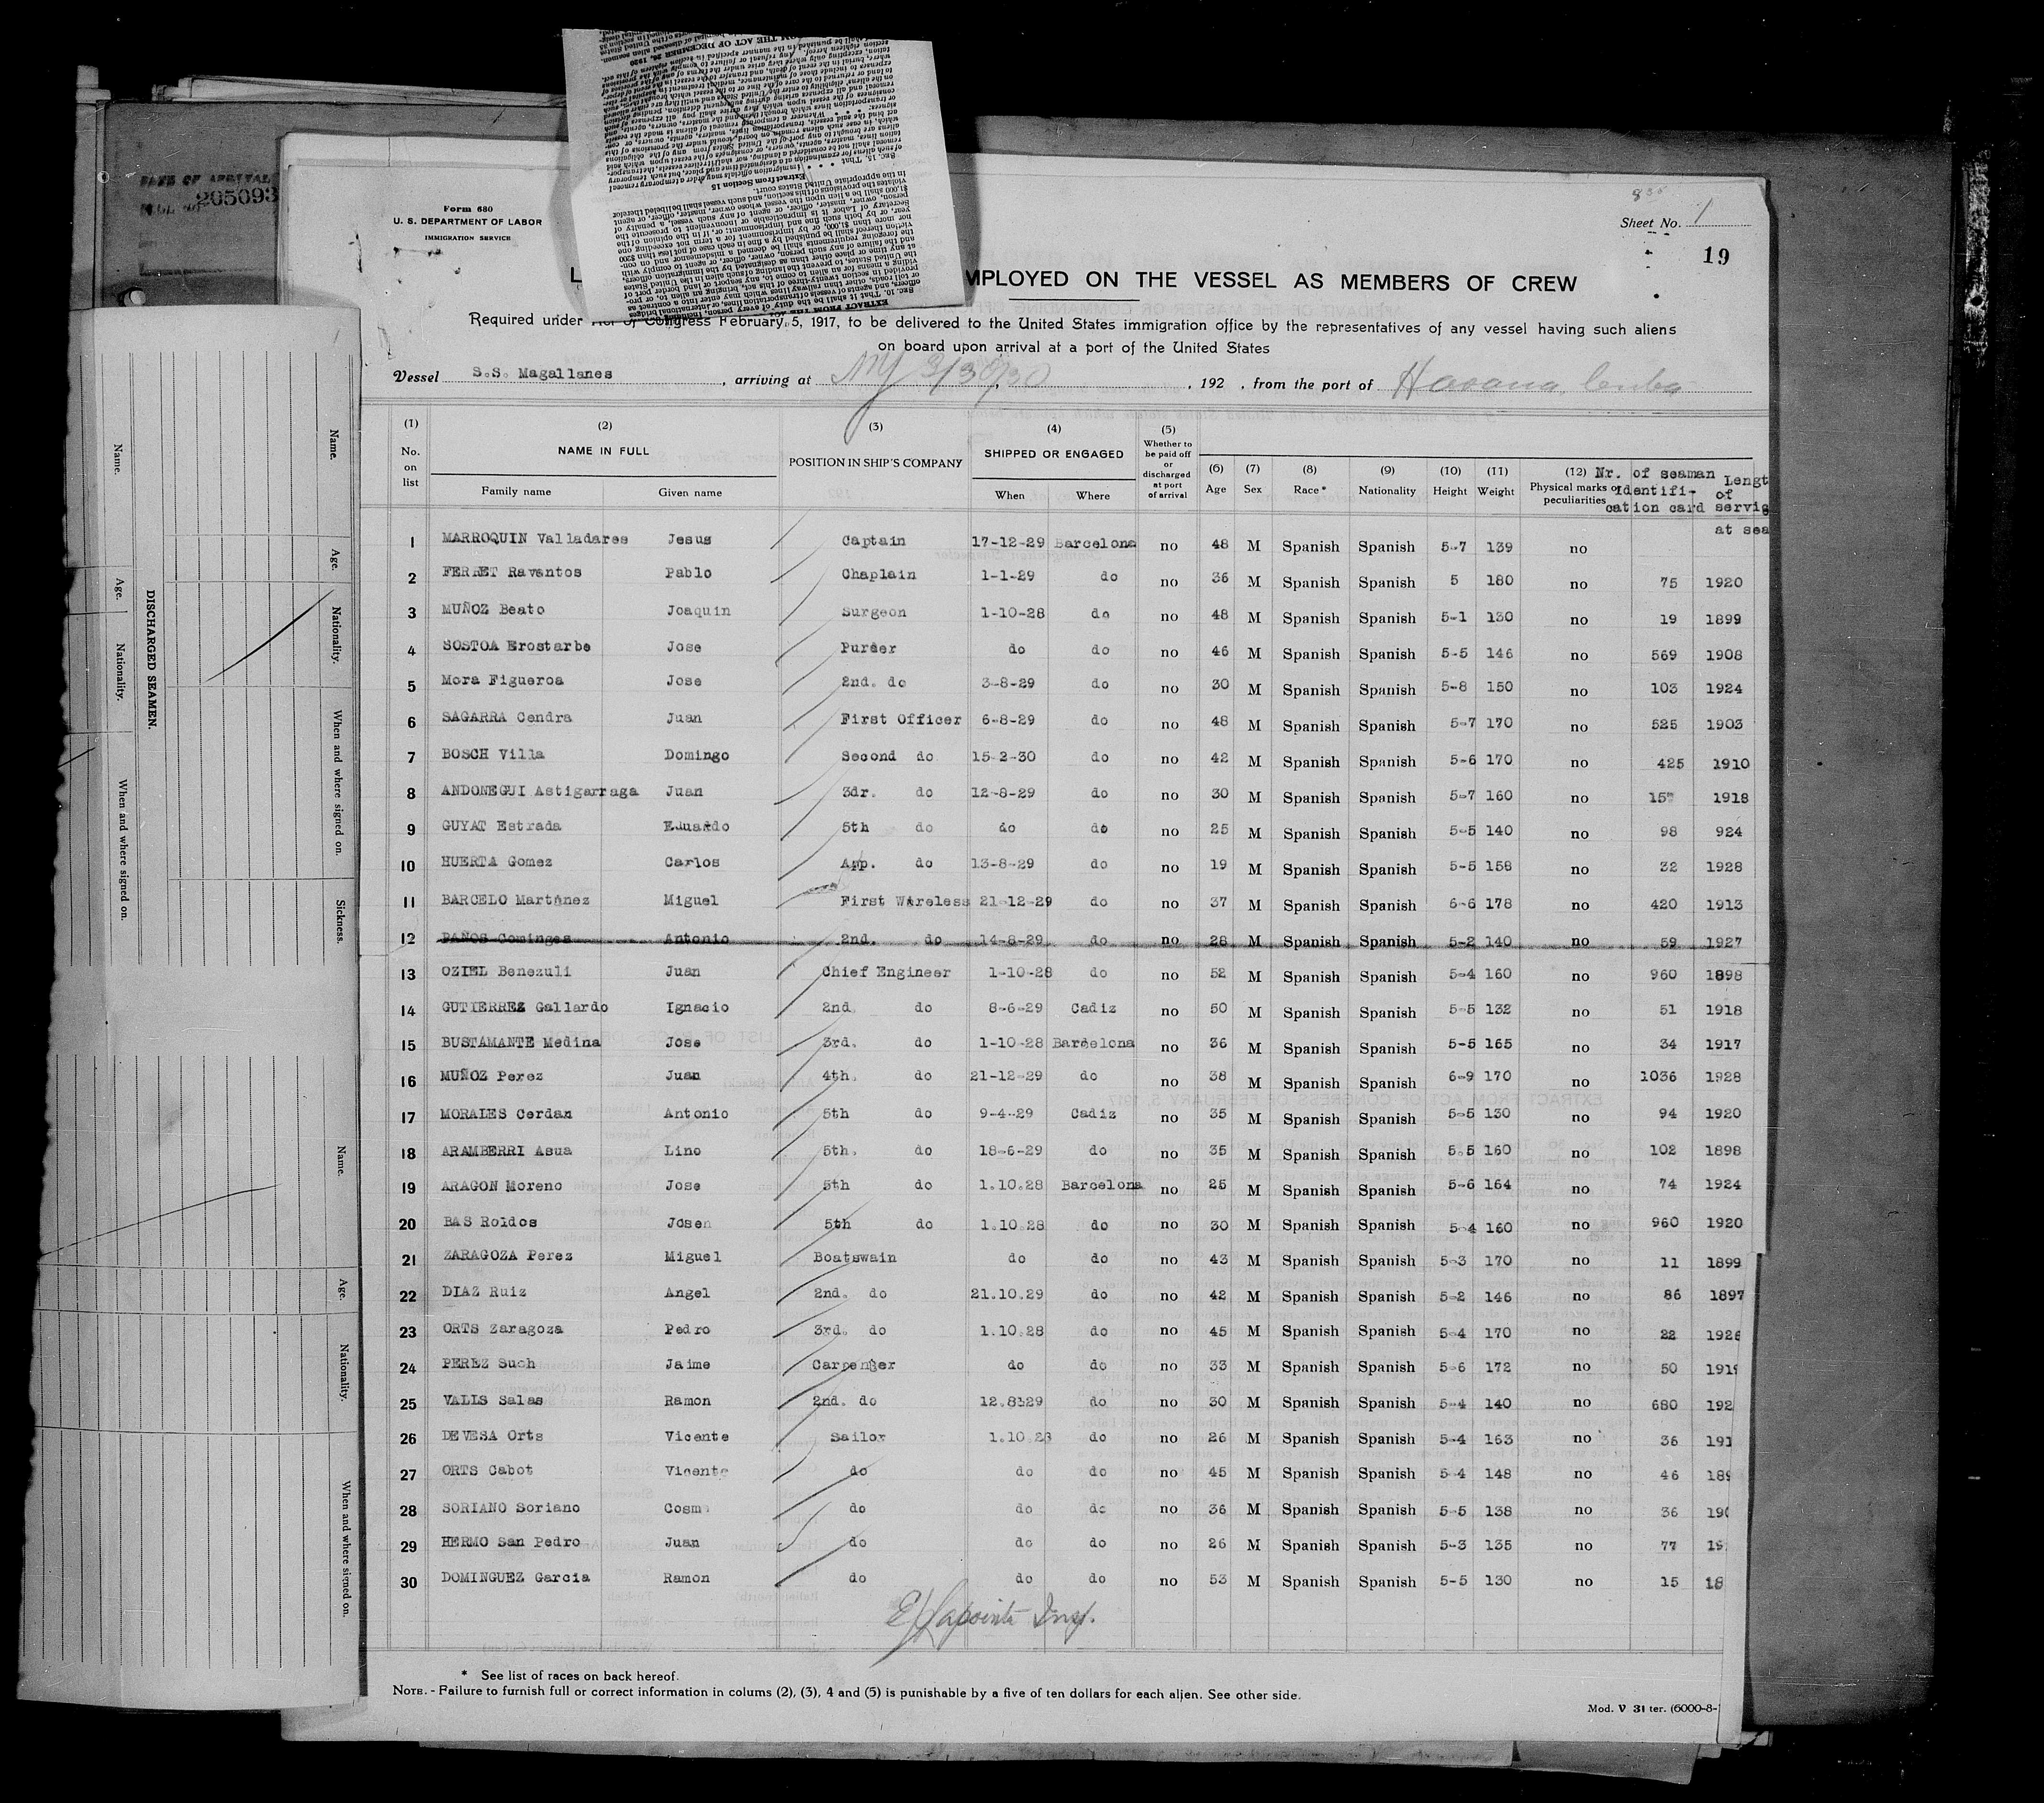 DATE OF ARRIVAL
205093
Form 680
U. S. DEPARTMENT OF LABOR
IMMIGRATION SERVICE
Sheet No. 1
19
MPLOYED ON THE VESSEL AS MEMBERS OF CREW
Required under Act of Congress February 5, 1917, to be delivered to the United States immigration office by the representatives of any vessel having such aliens
on board upon arrival at a port of the United States
Vessel S.S. Magallanes, arriving at NY 3/30/30, 192 , from the port of Havana, Cuba
(1) No. on list (2) NAME IN FULL Family name Given name (3) POSITION IN SHIP'S COMPANY (4) SHIPPED OR ENGAGED When Where (5) Whether to be paid off or discharged at port of arrival (6) Age (7) Sex (8) Race * (9) Nationality (10) Height (11) Weight (12) Physical marks or peculiarities Nr. of seaman identifi- cation card Lengt of servic at sea
1 MARROQUIN Valladares Jesus Captain 17-12-29 Barcelona no 48 M Spanish Spanish 5-7 139 no
2 FERRET Raventos Pablo Chaplain 1-1-29 do no 36 M Spanish Spanish 5 180 no 75 1920
3 MUÑOZ Beato Joaquin Surgeon 1-10-28 do no 48 M Spanish Spanish 5-1 130 no 19 1899
4 SOSTOA Erostarbe Jose Purser do do no 46 M Spanish Spanish 5-5 146 no 569 1908
5 Mora Figueroa Jose 2nd. do 3-8-29 do no 30 M Spanish Spanish 5-8 150 no 103 1924
6 SAGARRA Cendra Juan First Officer 6-8-29 do no 48 M Spanish Spanish 5-7 170 no 525 1903
7 BOSCH Villa Domingo Second do 15-2-30 do no 42 M Spanish Spanish 5-6 170 no 425 1910
8 ANDONEGUI Astigarraga Juan 3dr. do 12-8-29 do no 30 M Spanish Spanish 5-7 160 no 1918
9 GUYAT Estrada Eduardo 5th do do do no 25 M Spanish Spanish 5-5 140 no 98 924
10 HUERTA Gomez Carlos App. do 13-8-29 do no 19 M Spanish Spanish 5-5 158 no 32 1928
11 BARCELO Martinez Miguel First Wireless 21-12-29 do no 37 M Spanish Spanish 6-6 178 no 420 1913
12 BAÑOS Cominges Antonio 2nd. do 14-8-29 do no 28 M Spanish Spanish 5-2 140 no 59 1927
13 OZIEL Benezuli Juan Chief Engineer 1-10-28 do no 52 M Spanish Spanish 5-4 160 no 960 1898
14 GUTIERREZ Gallardo Ignacio 2nd. do 8-6-29 Cadiz no 50 M Spanish Spanish 5-5 132 no 51 1918
15 BUSTAMANTE Medina Jose 3rd. do 1-10-28 Barcelona no 36 M Spanish Spanish 5-5 165 no 34 1917
16 MUÑOZ Perez Juan 4th. do 21-12-29 do no 38 M Spanish Spanish 6-9 170 no 1036 1928
17 MORALES Cerdan Antonio 5th do 9-4-29 Cadiz no 35 M Spanish Spanish 5-5 130 no 94 1920
18 ARAMBERRI Asua Lino 5th. do 18-6-29 do no 35 M Spanish Spanish 5.5 160 no 102 1898
19 ARAGON Moreno Jose 5th do 1.10.28 Barcelona no 25 M Spanish Spanish 5-6 164 no 74 1924
20 BAS Roldos Josen 5th do 1.10.28 do no 30 M Spanish Spanish 5-4 160 no 960 1920
21 ZARAGOZA Perez Miguel Boatswain do do no 43 M Spanish Spanish 5-3 170 no 11 1899
22 DIAZ Ruiz Angel 2nd. do 21.10.29 do no 42 M Spanish Spanish 5-2 146 no 86 1897
23 ORTS Zaragoza Pedro 3rd. do 1.10.28 do no 45 M Spanish Spanish 5-4 170 no 22 1926
24 PEREZ Such Jaime Carpenter do do no 33 M Spanish Spanish 5-6 172 no 50 1919
25 VALLS Salas Ramon 2nd. do 12.8.29 do no 30 M Spanish Spanish 5-4 140 no 680 192
26 DEVESA Orts Vicente Sailor 1.10.28 do no 26 M Spanish Spanish 5-4 163 no 36 191
27 ORTS Cabot Vicente do do do no 45 M Spanish Spanish 5-4 148 no 46 189
28 SORIANO Soriano Cosme do do do no 36 M Spanish Spanish 5-5 138 no 36 190
29 HERMO San Pedro Juan do do do no 26 M Spanish Spanish 5-3 135 no 77 19
30 DOMINGUEZ Garcia Ramon do do do no 53 M Spanish Spanish 5-5 130 no 15 18
E Lapointe Insp.
* See list of races on back hereof.
NOTE. - Failure to furnish full or correct information in colums (2), (3), 4 and (5) is punishable by a five of ten dollars for each aljen. See other side.
Mod. V 31 ter. (6000-8-
DISCHARGED SEAMEN.
Name. Age. Nationality. When and where signed on.
Name. Age. Nationality. When and where signed on. Sickness.
Name. Age. Nationality. When and where signed on.
EXTRACT FROM THE ACT OF
SEC. 10. That it shall be the duty of every person, including
Extract from Section 15